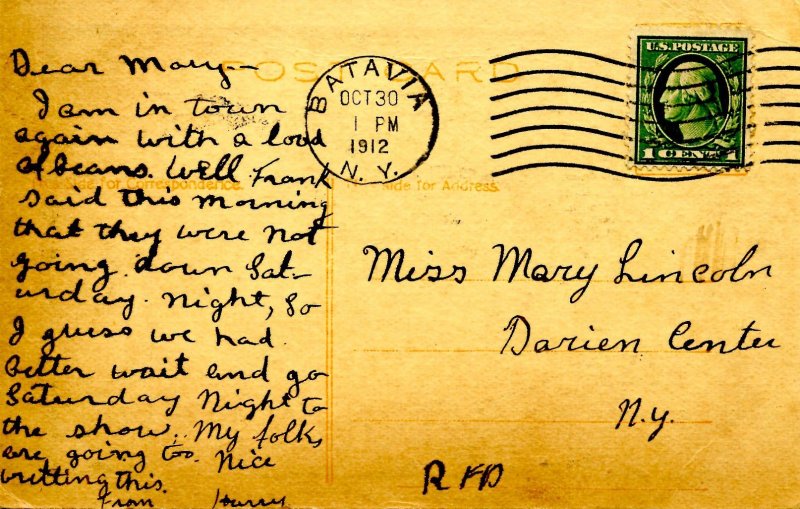 POST CARD
Dear Mary—
I am in town
again with a load
of beans. Well Frank
said this morning
that they were not
going down Sat-
urday. night, So
I guess we had.
better wait and go
Saturday Night to
the show. My folks
are going too. Nice
writting this.
From Harry
side for Correspondence.
side for Address.
BATAVIA
OCT 30
1 PM
1912
N. Y.
U.S. POSTAGE
1 CENT 1
Miss Mary Lincoln
Darien Center
N.y.
RFD